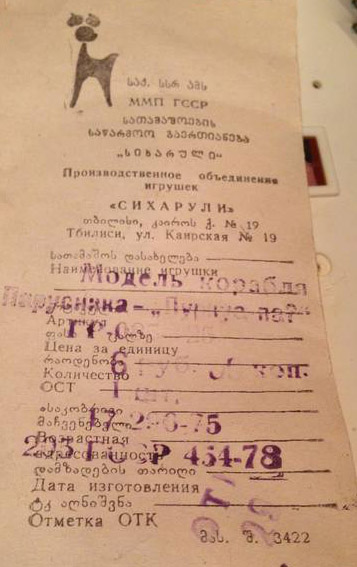 საქ. სსრ ამს
ММП ГССР
სათამაშოების
საწარმოო გაერთიანება
„სიხარული“
Производственное объединение
игрушек
«СИХАРУЛИ»
თბილისი, კაიროს ქ. № 19
Тбилиси, ул. Каирская № 19
სათამაშოს დასახელება
Наименование игрушки
Модель корабля
Парусника –
Цена за единицу
6 руб. коп.
რაოდენობა
Количество
1 шт.
ОСТ
17-290-75
ასაკობრივი
მაჩვენებელი
Возрастная
адресованность
454-78
დამზადების თარიღი
Дата изготовления
ტკ აღნიშვნა
Отметка ОТК
მას. შ. 3422